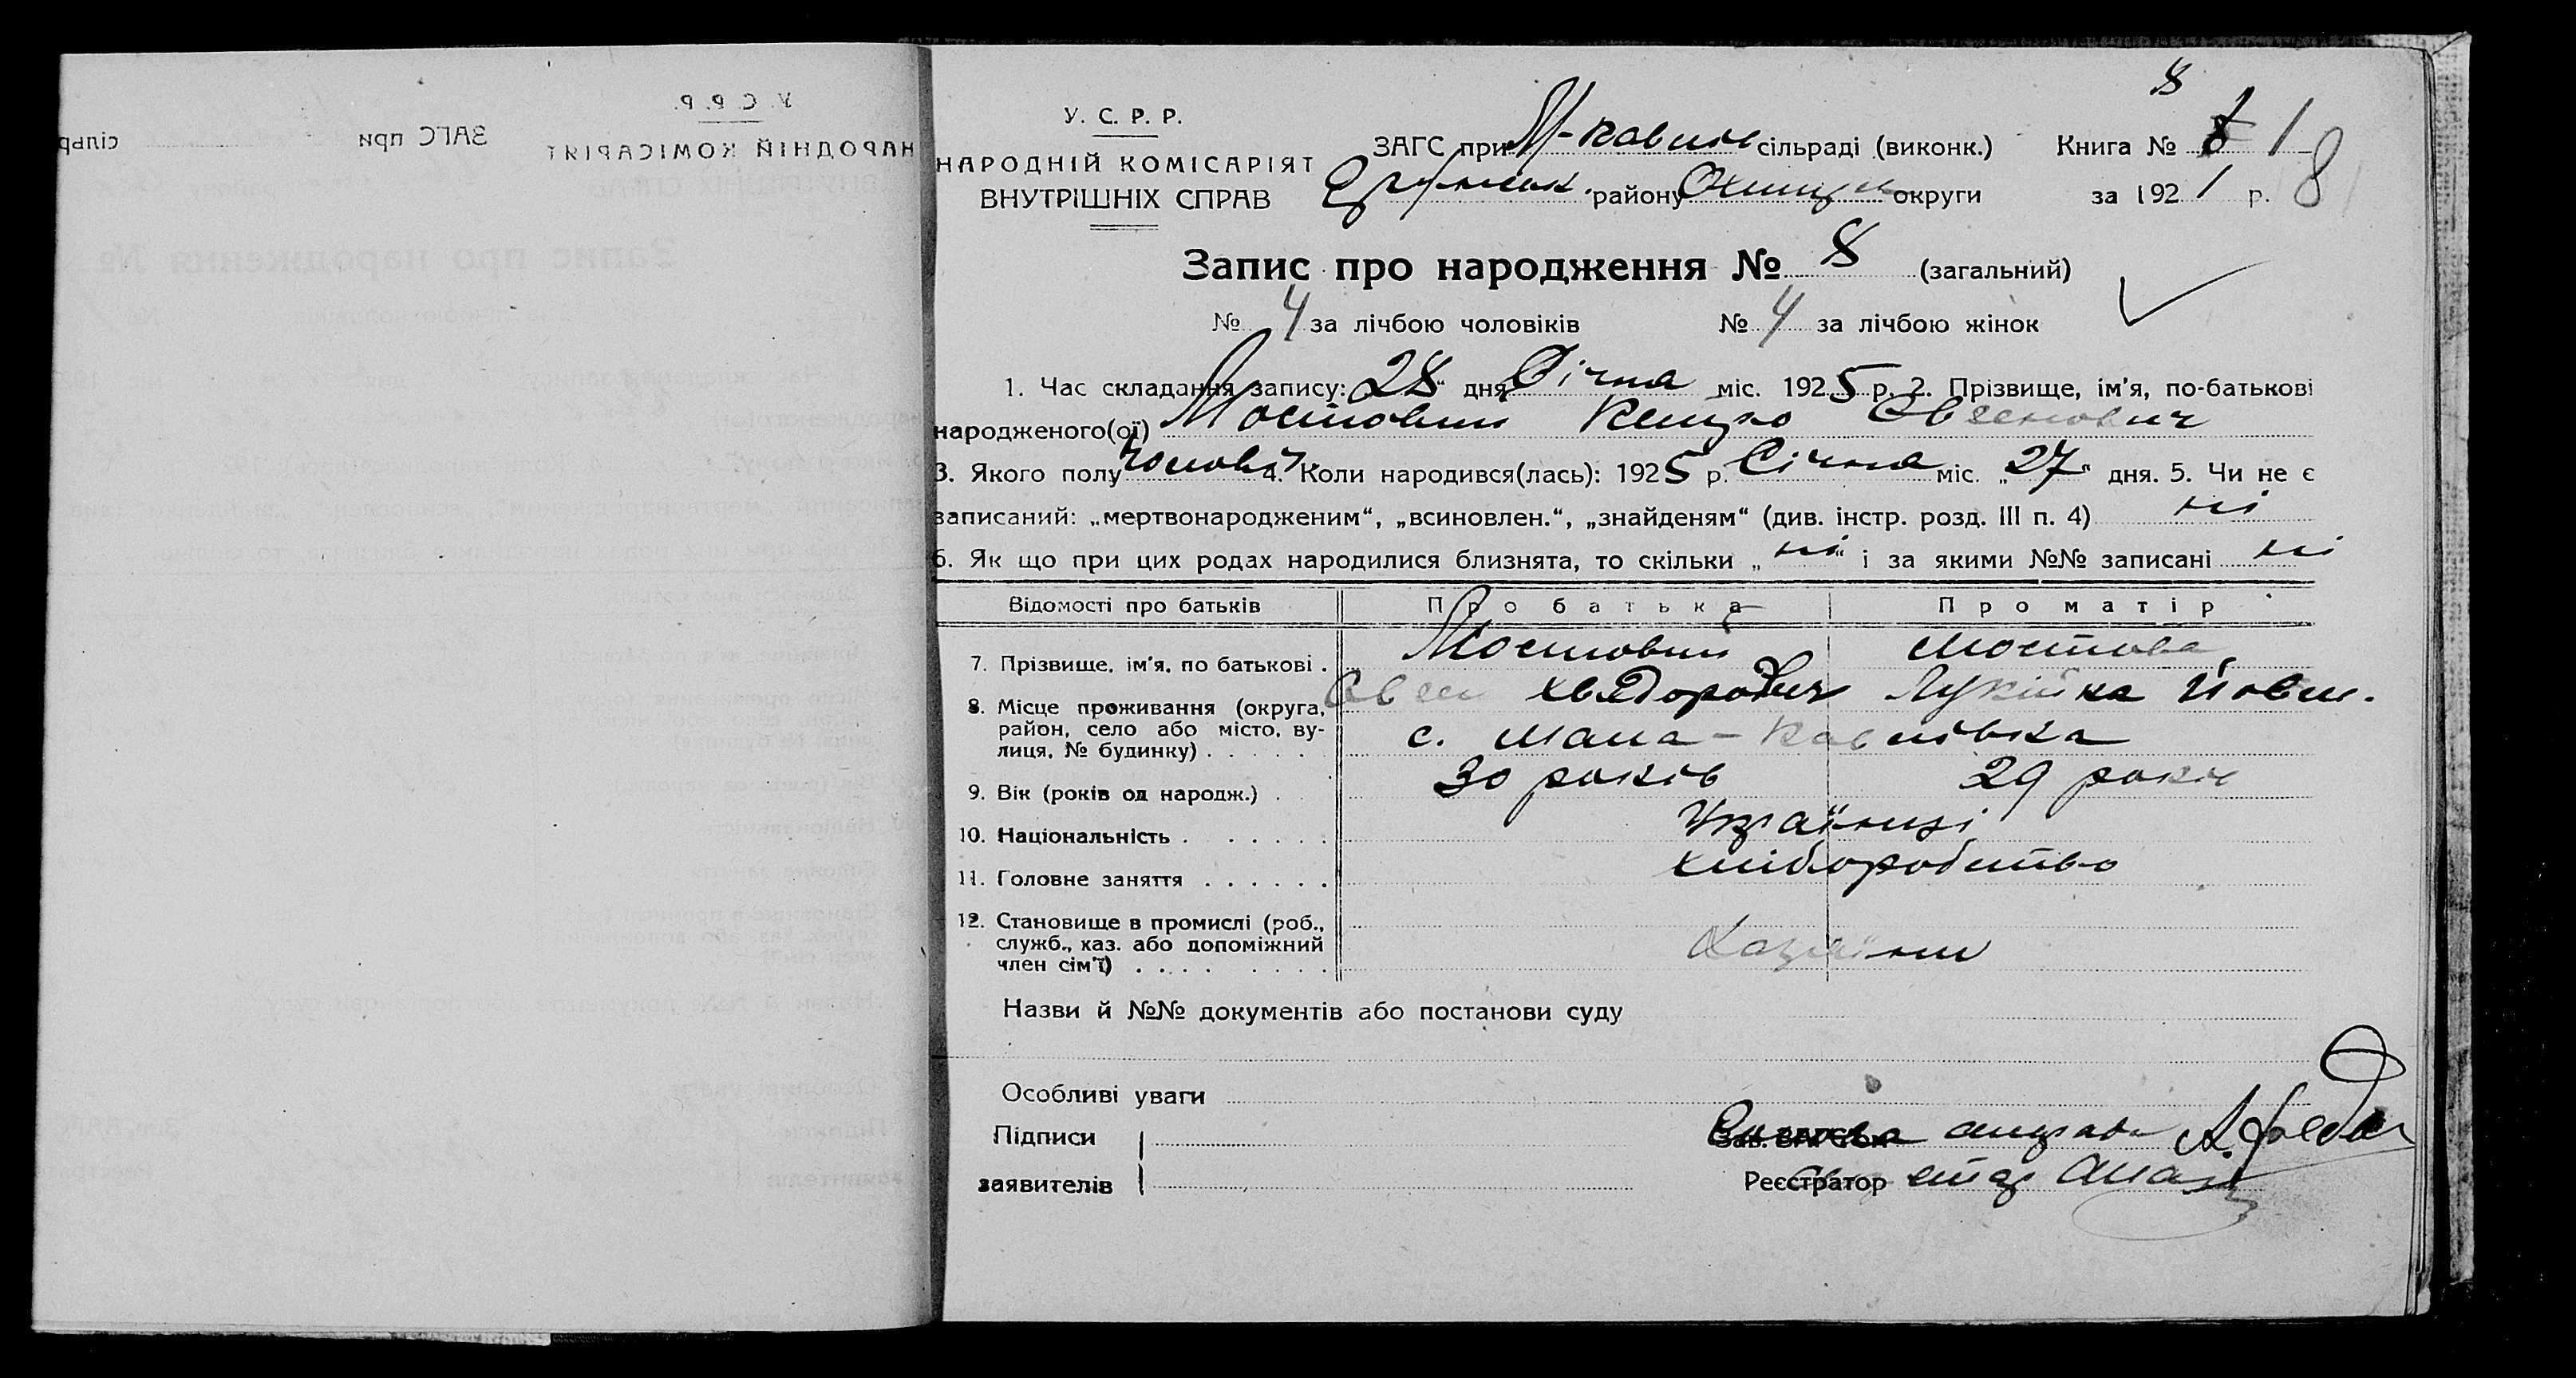 8
У. С. Р. Р.
НАРОДНІЙ КОМІСАРІЯТ
ВНУТРІШНІХ СПРАВ
ЗАГС при М-Павлів сільраді (виконк.) Книга № 1
району округи за 1921 р. 8
Запис про народження № 8 (загальний)
№ 4 за лічбою чоловіків № 4 за лічбою жінок
1. Час складання запису: 28" дня Січня міс. 1925 р. 2. Прізвище, ім'я, по-батькові
народженого(ої) Мостовий
3. Якого полу чоловіч 4. Коли народився(лась): 1925 р. Січня міс. „27" дня. 5. Чи не є
записаний: „мертвонародженим“, „всиновлен.“, „знайденям“ (див. інстр. розд. III п. 4) ні
6. Як що при цих родах народилися близнята, то скільки „ ні “ і за якими №№ записані ні
Відомості про батьків Про батька Про матір
7. Прізвище, ім'я, по батькові . Мостовий Мостова
Хведорович Лукійка
8. Місце проживання (округа, район, село або місто, вулиця, № будинку) . . . . . с. Мала-Павлівка
9. Вік (років од народж.) . 30 років 29 років
10. Національність . . . . . . Українці
11. Головне заняття . . . . . . хліборобство
12. Становище в промислі (роб., служб., хаз. або допоміжний член сім'ї) . . . . . . . . Хазяїни
Назви й №№ документів або постанови суду
Особливі уваги
Підписи
заявителів
Зав. ЗАГСОМ
Реєстратор